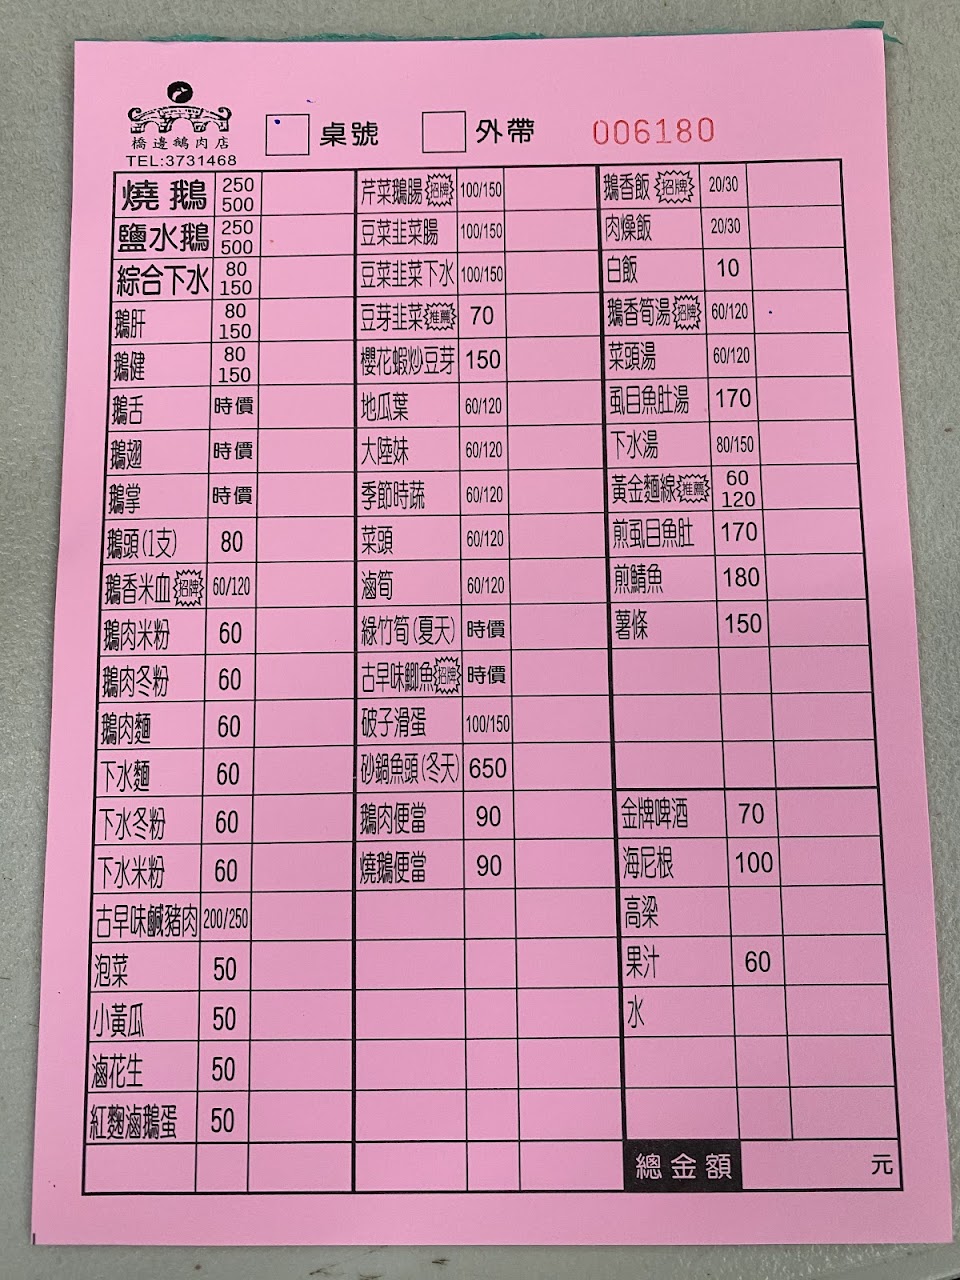 橋邊鵝肉店
TEL:3731468
桌號
外帶
006180
燒鵝 250 500
鹽水鵝 250 500
綜合下水 80 150
鵝肝 80 150
鵝健 80 150
鵝舌 時價
鵝翅 時價
鵝掌 時價
鵝頭(1支) 80
鵝香米血 招牌 60/120
鵝肉米粉 60
鵝肉冬粉 60
鵝肉麵 60
下水麵 60
下水冬粉 60
下水米粉 60
古早味鹹豬肉 200/250
泡菜 50
小黃瓜 50
滷花生 50
紅麴滷鵝蛋 50
芹菜鵝腸 招牌 100/150
豆菜韭菜腸 100/150
豆菜韭菜下水 100/150
豆芽韭菜 推薦 70
櫻花蝦炒豆芽 150
地瓜葉 60/120
大陸妹 60/120
季節時蔬 60/120
菜頭 60/120
滷筍 60/120
綠竹筍(夏天) 時價
古早味鯽魚 招牌 時價
破子滑蛋 100/150
砂鍋魚頭(冬天) 650
鵝肉便當 90
燒鵝便當 90
鵝香飯 招牌 20/30
肉燥飯 20/30
白飯 10
鵝香筍湯 招牌 60/120
菜頭湯 60/120
虱目魚肚湯 170
下水湯 80/150
黃金麵線 推薦 60 120
煎虱目魚肚 170
煎鯖魚 180
薯條 150
金牌啤酒 70
海尼根 100
高梁
果汁 60
水
總金額 元